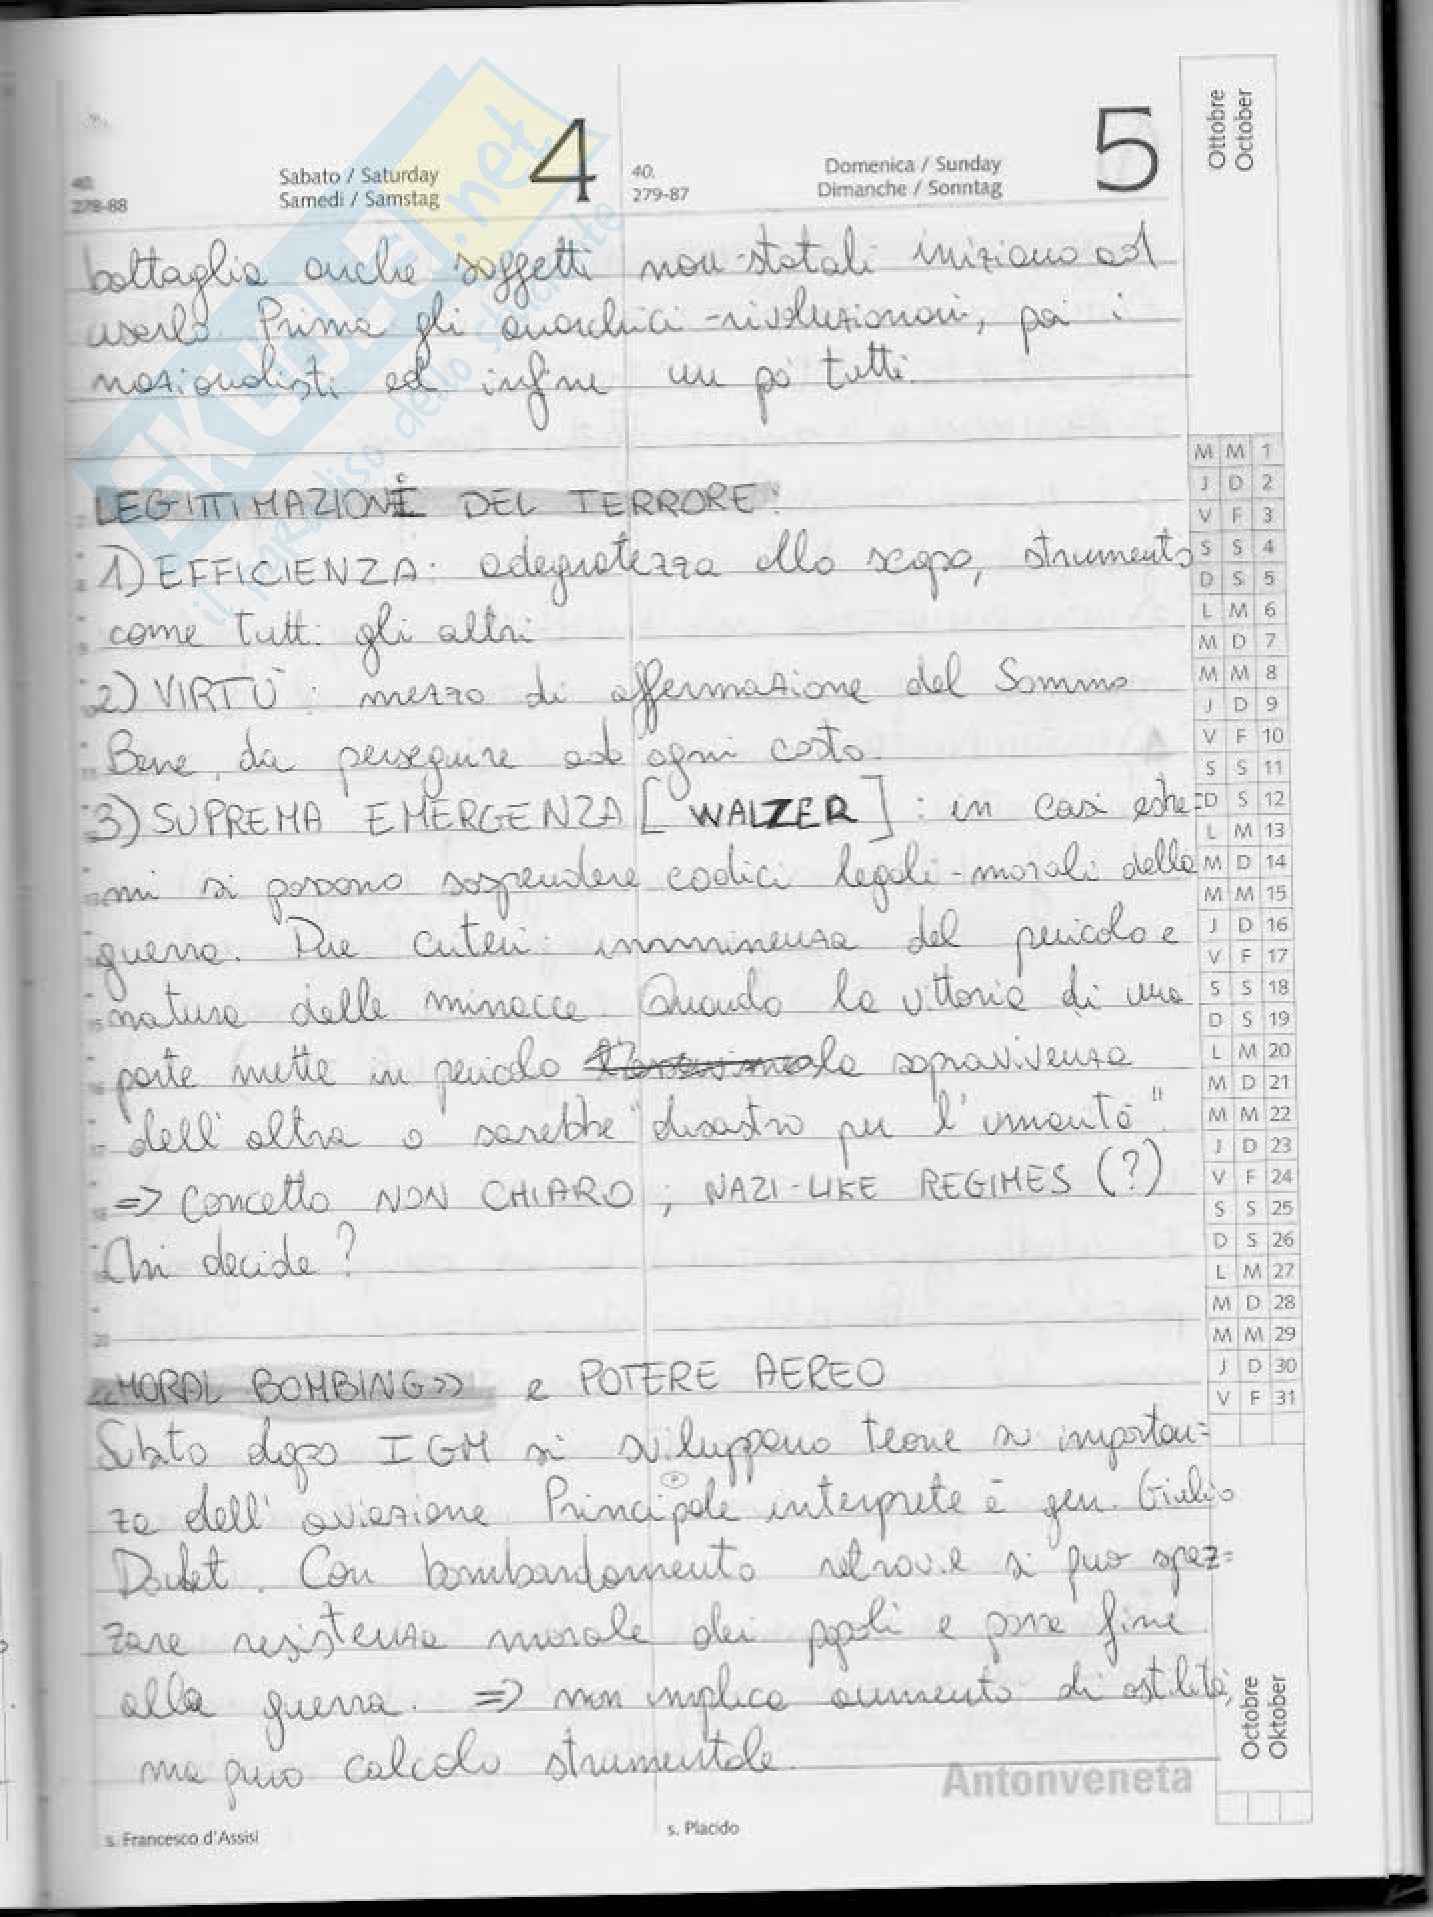 4
5
Sabato / Saturday
Samedi / Samstag
Domenica / Sunday
Dimanche / Sonntag
40.
278-88
40.
279-87
Ottobre
October
SKUOLA.net
il paradiso dello studente
battaglia anche soggetti non-statali iniziano ad
usarlo. Prima gli anarchici-rivoluzionari, poi i
nazionalisti ed infine un po' tutti.
LEGITTIMAZIONI DEL TERRORE:
1) EFFICIENZA: adeguatezza allo scopo, strumento
come tutti gli altri
2) VIRTÙ: mezzo di affermazione del Sommo
Bene, da perseguire ad ogni costo.
3) SUPREMA EMERGENZA [WALZER]: in casi estre=
mi si possono sospendere codici legali-morali della
guerra. Due criteri: imminenza del pericolo e
natura delle minacce. Quando la vittoria di una
parte mette in pericolo la sopravvivenza
dell'altra o sarebbe "disastro per l'umanità".
=> Concetto NON CHIARO; NAZI-LIKE REGIMES (?)
Chi decide?
«MORAL BOMBING» e POTERE AEREO
Subito dopo I GM si sviluppano teorie su importan=
za dell'aviazione. Principale interprete è gen. Giulio
Douhet. Con bombardamento si può spez=
zare resistenza morale dei popoli e porre fine
alla guerra. => non implica aumento di ostilità,
ma puro calcolo strumentale.
M M 1
J D 2
V F 3
S S 4
D S 5
L M 6
M D 7
M M 8
J D 9
V F 10
S S 11
D S 12
L M 13
M D 14
M M 15
J D 16
V F 17
S S 18
D S 19
L M 20
M D 21
M M 22
J D 23
V F 24
S S 25
D S 26
L M 27
M D 28
M M 29
J D 30
V F 31
Octobre
Oktober
Antonveneta
s. Francesco d'Assisi
s. Placido